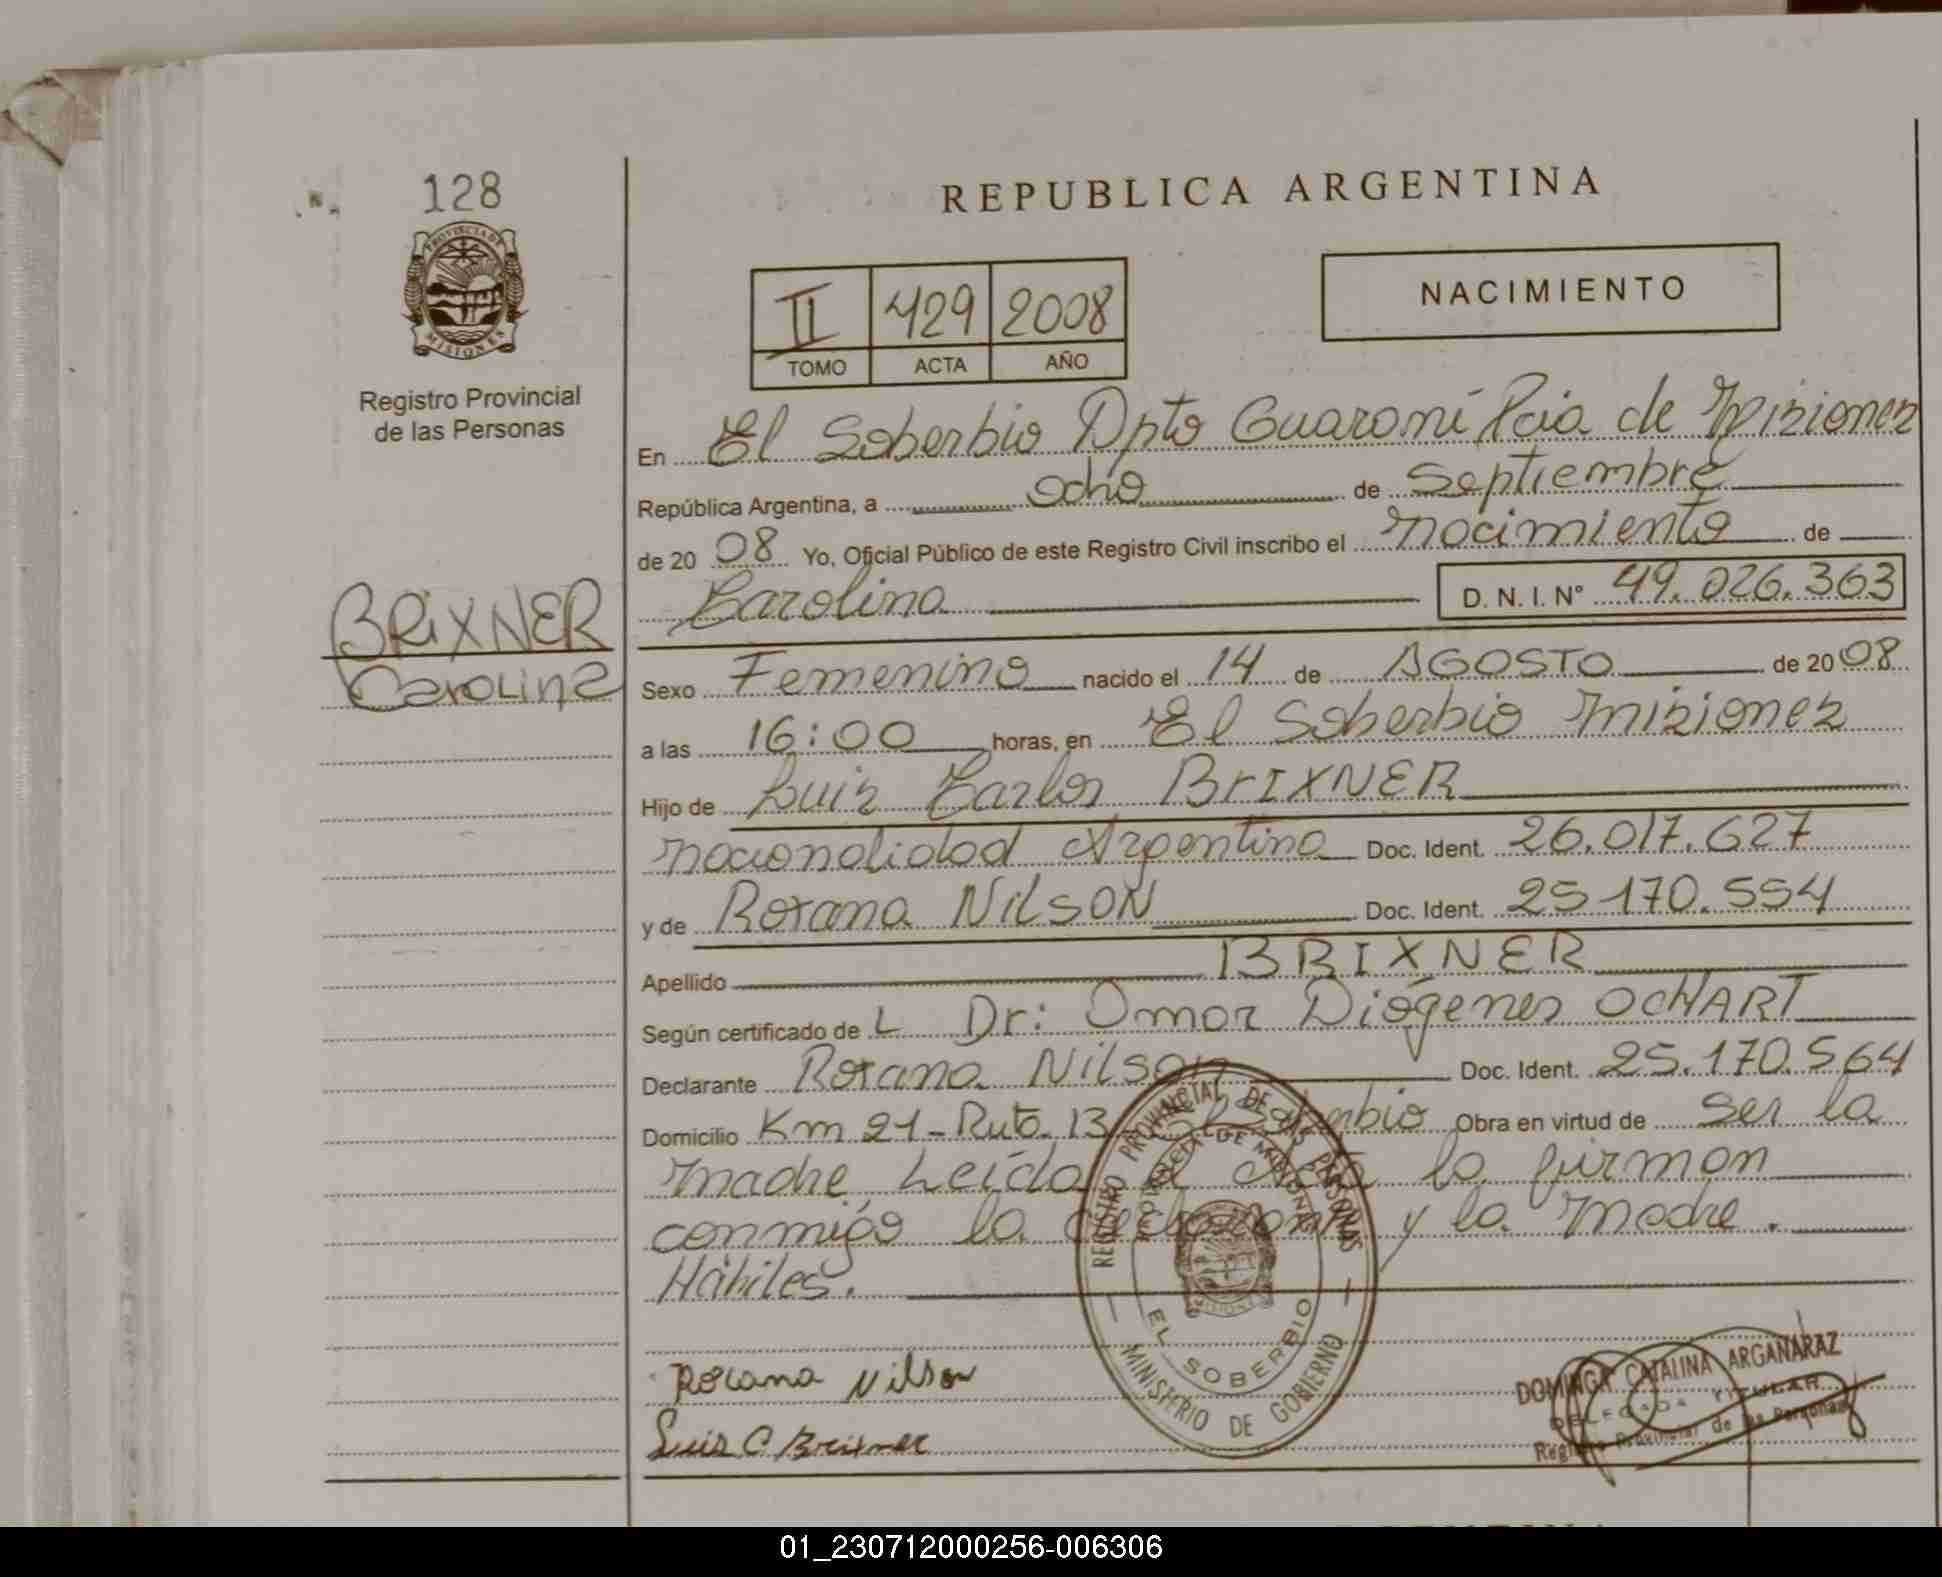 128
PROVINCIA DE
MISIONES
Registro Provincial
de las Personas
BRIXNER
Carolina
REPUBLICA ARGENTINA
II 429 2008
TOMO ACTA AÑO
NACIMIENTO
En El Soberbio Dpto Guaraní Pcia de Misiones
República Argentina, a ocho de Septiembre
de 20 08 Yo, Oficial Público de este Registro Civil inscribo el nacimiento de
Carolina D. N. I. N° 49.026.363
Sexo Femenino nacido el 14 de AGOSTO de 20 08
a las 16:00 horas, en El Soberbio Misiones
Hijo de Luis Carlos BRIXNER
nacionalidad Argentina Doc. Ident. 26.017.627
y de Roxana NilsON Doc. Ident. 25 170.554
Apellido BRIXNER
Según certificado de L Dr: Omar Diógenes OCHART
Declarante Roxana Nilson Doc. Ident. 25.170.564
Domicilio Km 21 - Ruta 13 El Soberbio Obra en virtud de ser la
madre Leída el Acta la firman
conmigo la declarante y la madre.
Hábiles.
REGISTRO PROVINCIAL DE LAS PERSONAS
PROVINCIA DE MISIONES
MISIONES
EL SOBERBIO
MINISTERIO DE GOBIERNO
Rocana Nilson
Luis C Brixner
DOMINGA CATALINA ARGAÑARAZ
DELEGADA TITULAR
Registro Provincial de las Personas
01_230712000256-006306